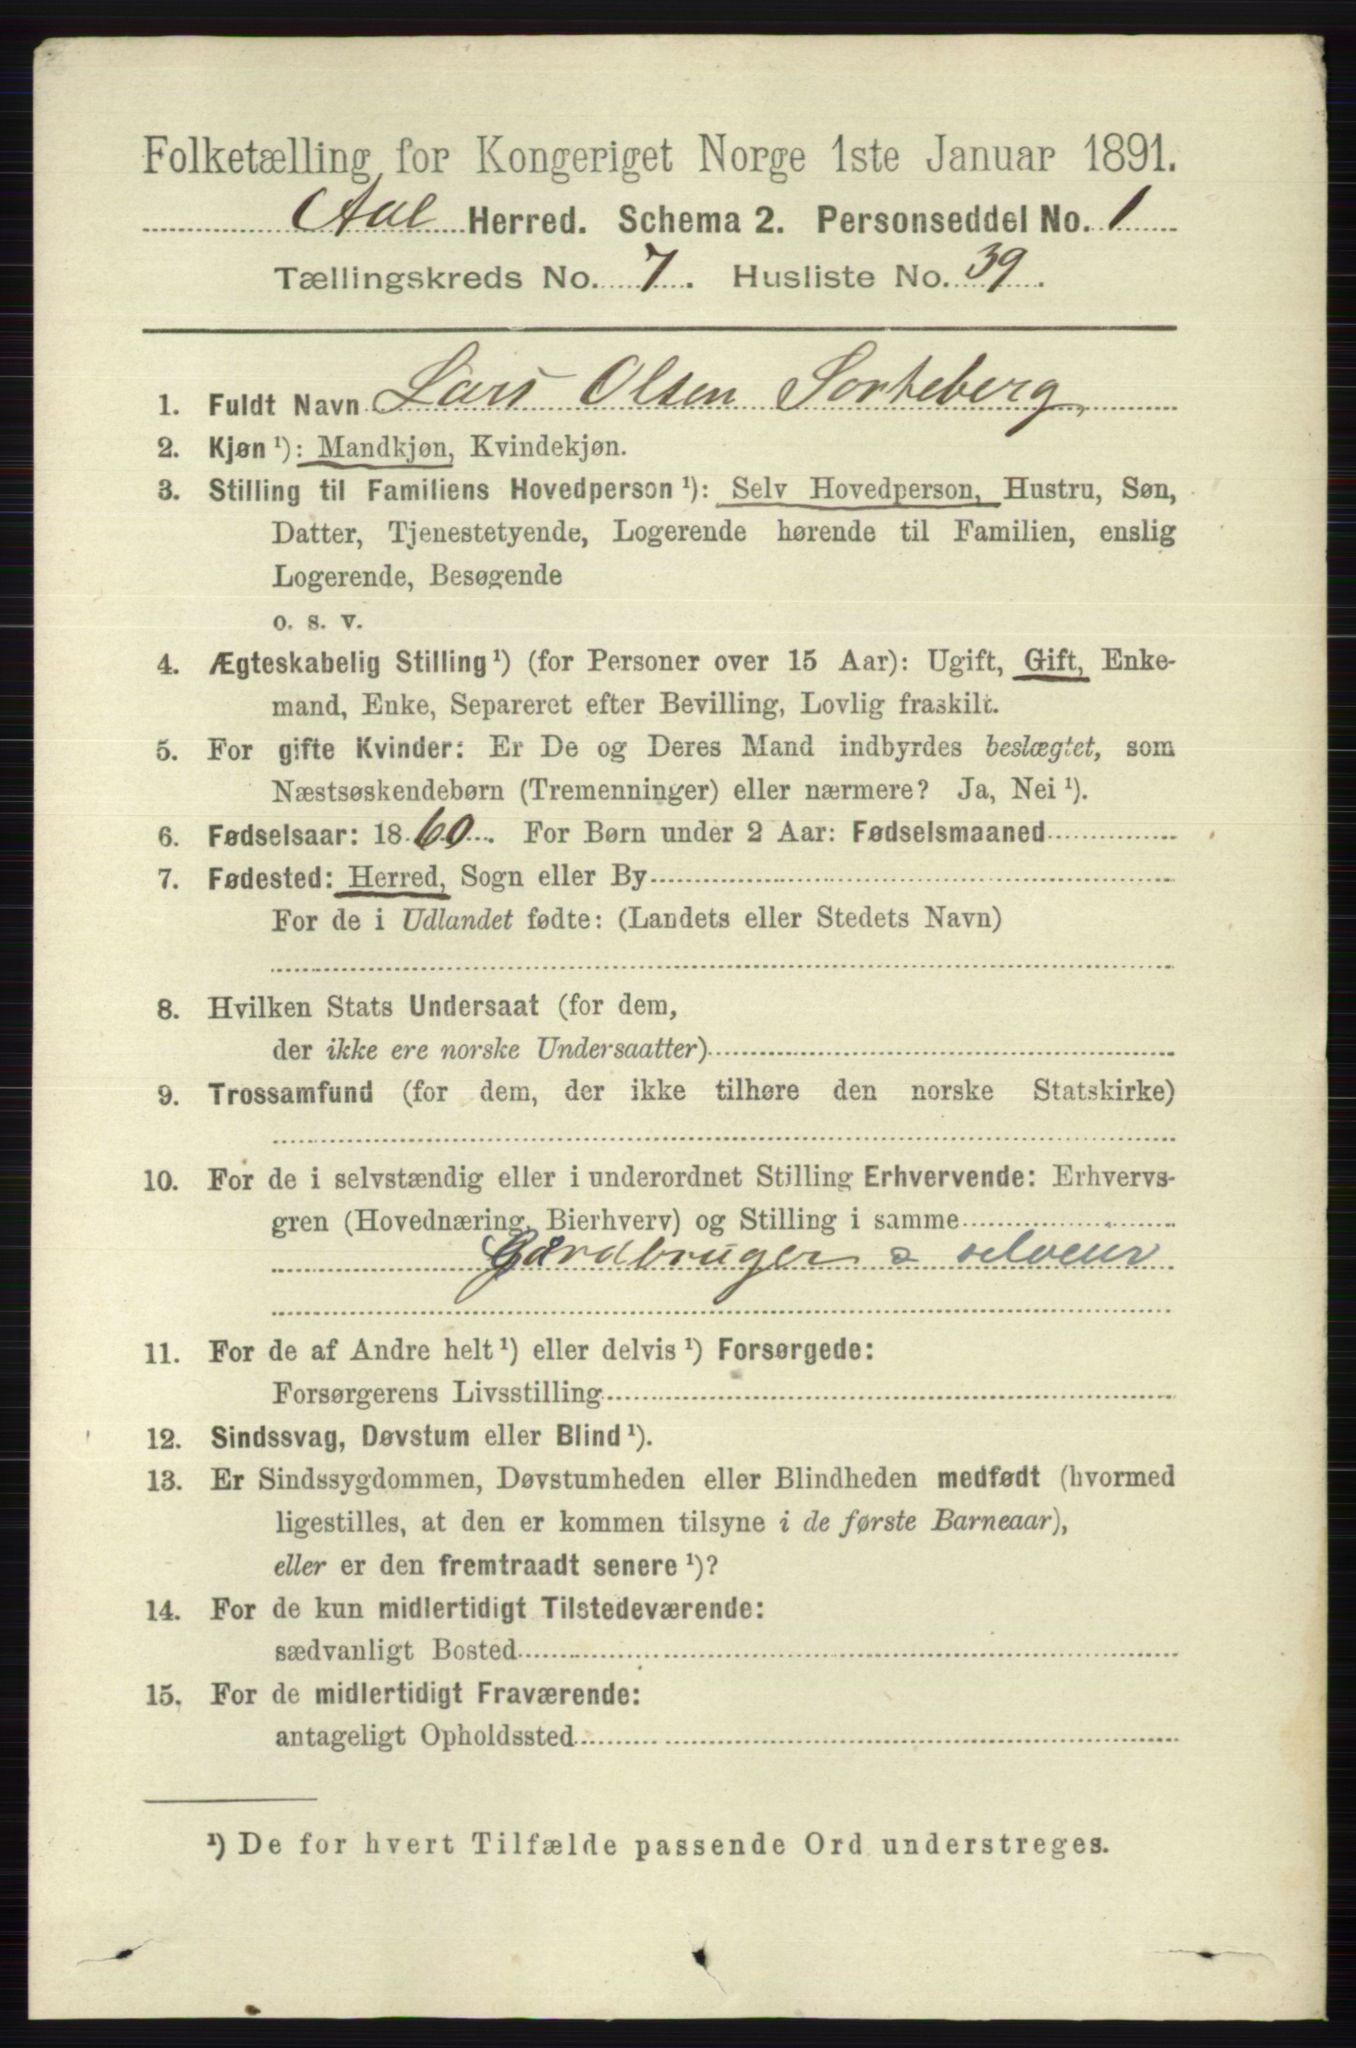 Folketælling for Kongeriget Norge 1ste Januar 1891.
Aal Herred. Schema 2. Personseddel No. 1
Tællingskreds No. 7. Husliste No. 39.
1. Fuldt Navn Lars Olsen Sorteberg,
2. Kjøn¹): Mandkjøn, Kvindekjøn.
3. Stilling til Familiens Hovedperson¹): Selv Hovedperson, Hustru, Søn,
Datter, Tjenestetyende, Logerende hørende til Familien, enslig
Logerende, Besøgende
o. s. v.
4. Ægteskabelig Stilling¹) (for Personer over 15 Aar): Ugift, Gift, Enke-
mand, Enke, Separeret efter Bevilling, Lovlig fraskilt.
5. For gifte Kvinder: Er De og Deres Mand indbyrdes beslægtet, som
Næstsøskendebørn (Tremenninger) eller nærmere? Ja, Nei¹).
6. Fødselsaar: 1860. For Børn under 2 Aar: Fødselsmaaned
7. Fødested: Herred, Sogn eller By
For de i Udlandet fødte: (Landets eller Stedets Navn)
8. Hvilken Stats Undersaat (for dem,
der ikke ere norske Undersaatter)
9. Trossamfund (for dem, der ikke tilhøre den norske Statskirke)
10. For de i selvstændig eller i underordnet Stilling Erhvervende: Erhvervs-
gren (Hovednæring, Bierhverv) og Stilling i samme
Gardbruger selveier
11. For de af Andre helt¹) eller delvis¹) Forsørgede:
Forsørgerens Livsstilling
12. Sindssvag, Døvstum eller Blind¹).
13. Er Sindssygdommen, Døvstumheden eller Blindheden medfødt (hvormed
ligestilles, at den er kommen tilsyne i de første Barneaar),
eller er den fremtraadt senere¹)?
14. For de kun midlertidigt Tilstedeværende:
sædvanligt Bosted
15. For de midlertidigt Fraværende:
antageligt Opholdssted
¹) De for hvert Tilfælde passende Ord understreges.